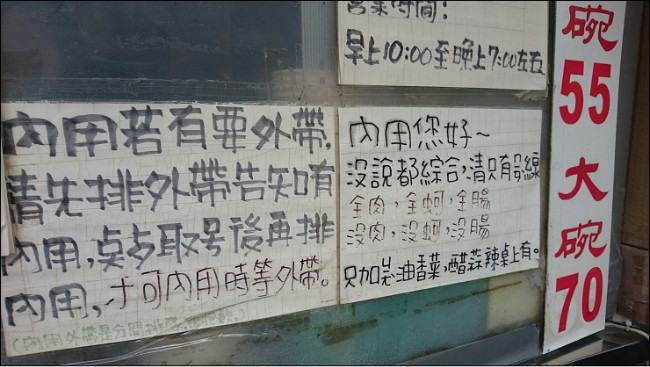 營業時間：
早上10:00至晚上7:00左右
內用若有要外帶，
請先排外帶告知有
內用，桌號取号後再排
內用，才可內用時等外帶。
內用您好~
沒說都綜合，清只有麵線
全肉，全蚵，全腸
沒肉，沒蚵，沒腸
只加烏醋，油香菜，醋蒜辣桌上有。
碗
55
大
碗
70